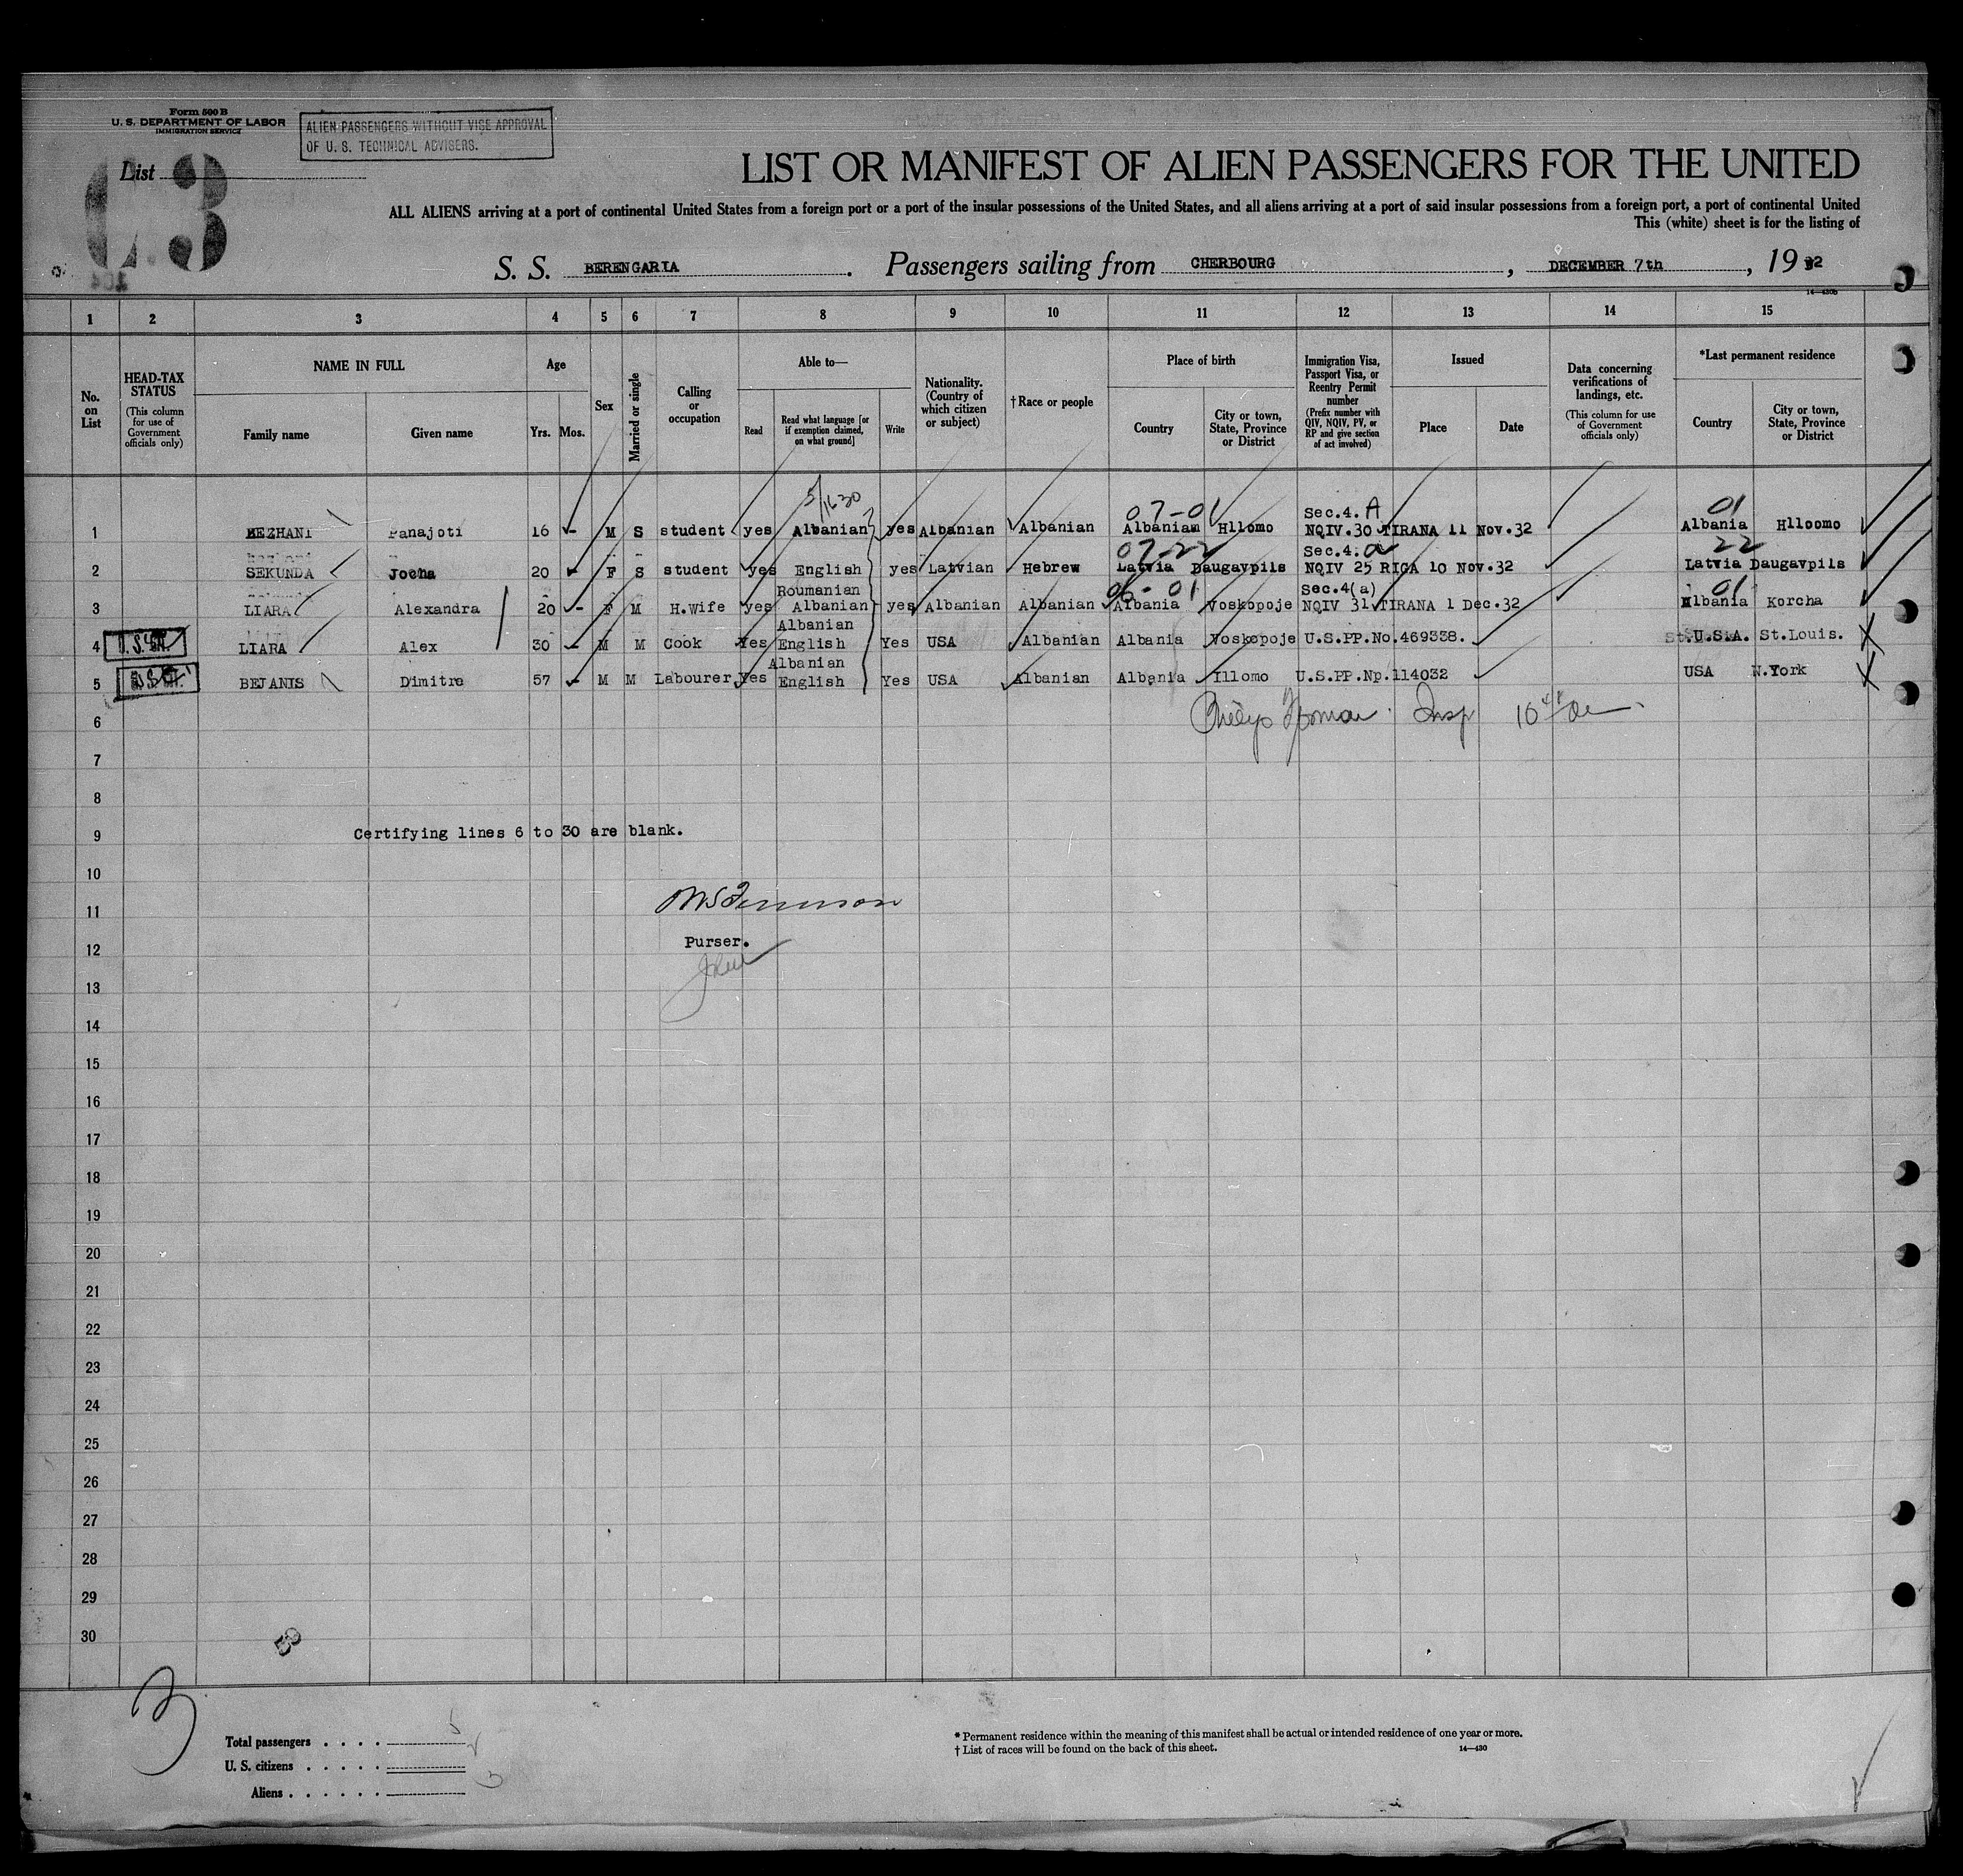 Form 500 B
U. S. DEPARTMENT OF LABOR
IMMIGRATION SERVICE
ALIEN PASSENGERS WITHOUT VISE APPROVAL
OF U. S. TECHNICAL ADVISERS.
List
3
LIST OR MANIFEST OF ALIEN PASSENGERS FOR THE UNITED
ALL ALIENS arriving at a port of continental United States from a foreign port or a port of the insular possessions of the United States, and all aliens arriving at a port of said insular possessions from a foreign port, a port of continental United
This (white) sheet is for the listing of
S. S. BERENGARIA. Passengers sailing from CHERBOURG, DECEMBER 7th, 1932
1 2 3 4 5 6 7 8 9 10 11 12 13 14 15
No. on List
HEAD-TAX STATUS
(This column for use of Government officials only)
NAME IN FULL
Family name
Given name
Age
Yrs.
Mos.
Sex
Married or single
Calling or occupation
Able to—
Read
Read what language [or if exemption claimed, on what ground]
Write
Nationality. (Country of which citizen or subject)
†Race or people
Place of birth
Country
City or town, State, Province or District
Immigration Visa, Passport Visa, or Reentry Permit number
(Prefix number with QIV, NQIV, PV, or RP and give section of act involved)
Issued
Place
Date
Data concerning verifications of landings, etc.
(This column for use of Government officials only)
*Last permanent residence
Country
City or town, State, Province or District
07-01 Sec.4. A 01
1 MEZHANI Panajoti 16 - M S student yes Albanian yes Albanian Albanian Albanian Hllomo NQIV.30 TIRANA 11 Nov.32 Albania Hlloomo
07-22 Sec.4.a 22
2 SEKUNDA Jocha 20 - F S student yes English yes Latvian Hebrew Latvia Daugavpils NQIV 25 RIGA 10 Nov.32 Latvia Daugavpils
Roumanian 06-01 Sec.4(a) 01
3 LIARA Alexandra 20 - F M H.Wife yes Albanian yes Albanian Albanian Albania Voskopoje NQIV 31 TIRANA 1 Dec.32 Albania Korcha
Albanian
4 LIARA Alex 30 - M M Cook Yes English Yes USA Albanian Albania Voskopoje U.S.PP.No.469338. U.S.A. St.Louis.
Albanian
5 BEJANIS Dimitre 57 - M M Labourer Yes English Yes USA Albanian Albania Illomo U.S.PP.Np.114032 USA N.York
6
7
8
9 Certifying lines 6 to 30 are blank.
10
11
12 Purser.
13
14
15
16
17
18
19
20
21
22
23
24
25
26
27
28
29
30
3
Total passengers . . . . 5
U. S. citizens . . . . . 2
Aliens . . . . . . 3
* Permanent residence within the meaning of this manifest shall be actual or intended residence of one year or more.
† List of races will be found on the back of this sheet.
14—430